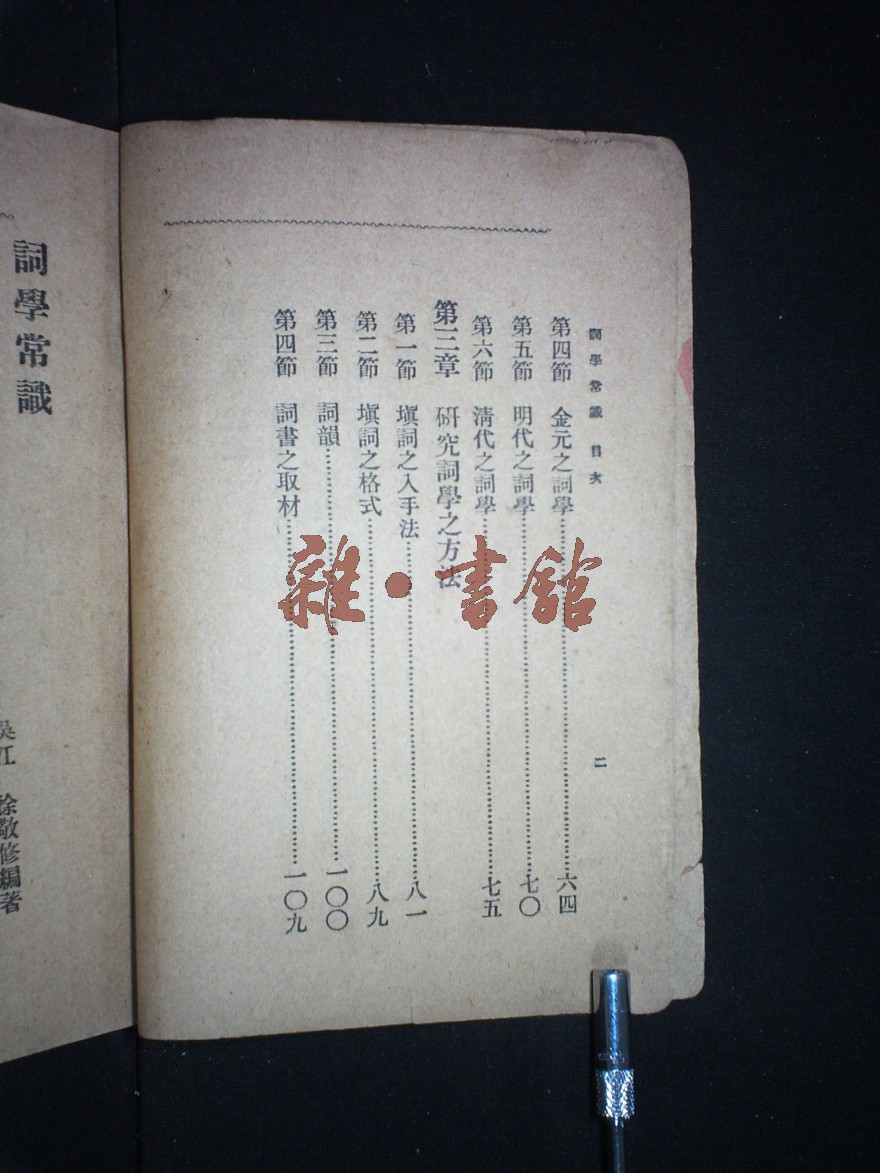 詞學常識 目次
二
第四節 金元之詞學……六四
第五節 明代之詞學……七〇
第六節 清代之詞學……七五
第三章 研究詞學之方法
第一節 塡詞之入手法……八一
第二節 塡詞之格式……八九
第三節 詞韻……一〇〇
第四節 詞書之取材……一〇九
詞學常識
吳江 徐敬修編著
雜·書館